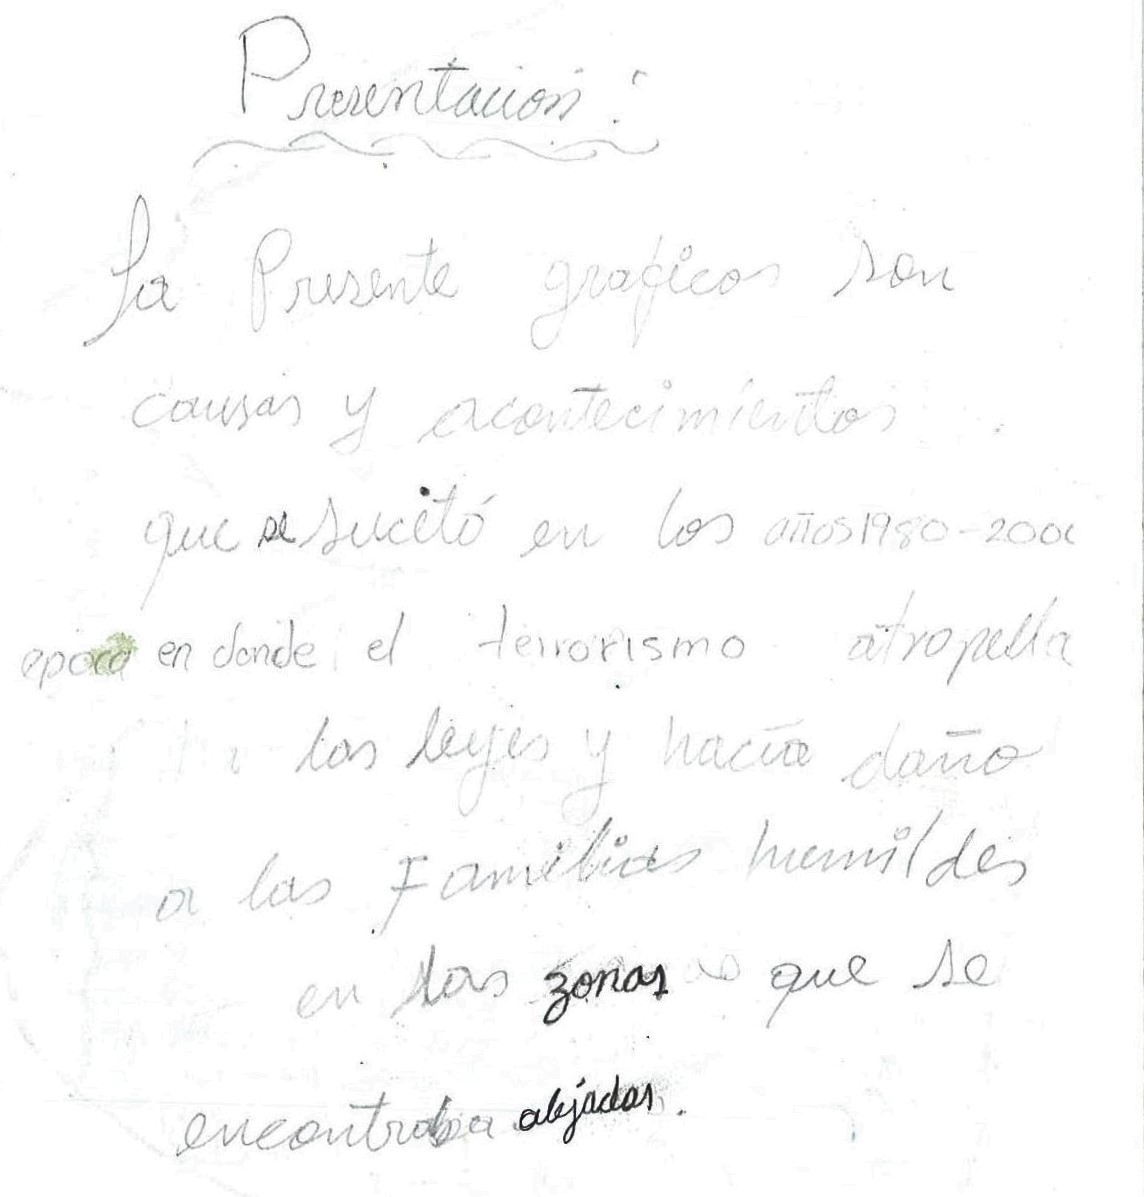 Presentacion:
La Presente graficos son
causas y acontecimientos
que se sucitó en los años 1980-2000
epoca en donde el terrorismo atropella
las leyes y hacía daño
a las Familias humildes
en las zonas que se
encontraba alejadas.